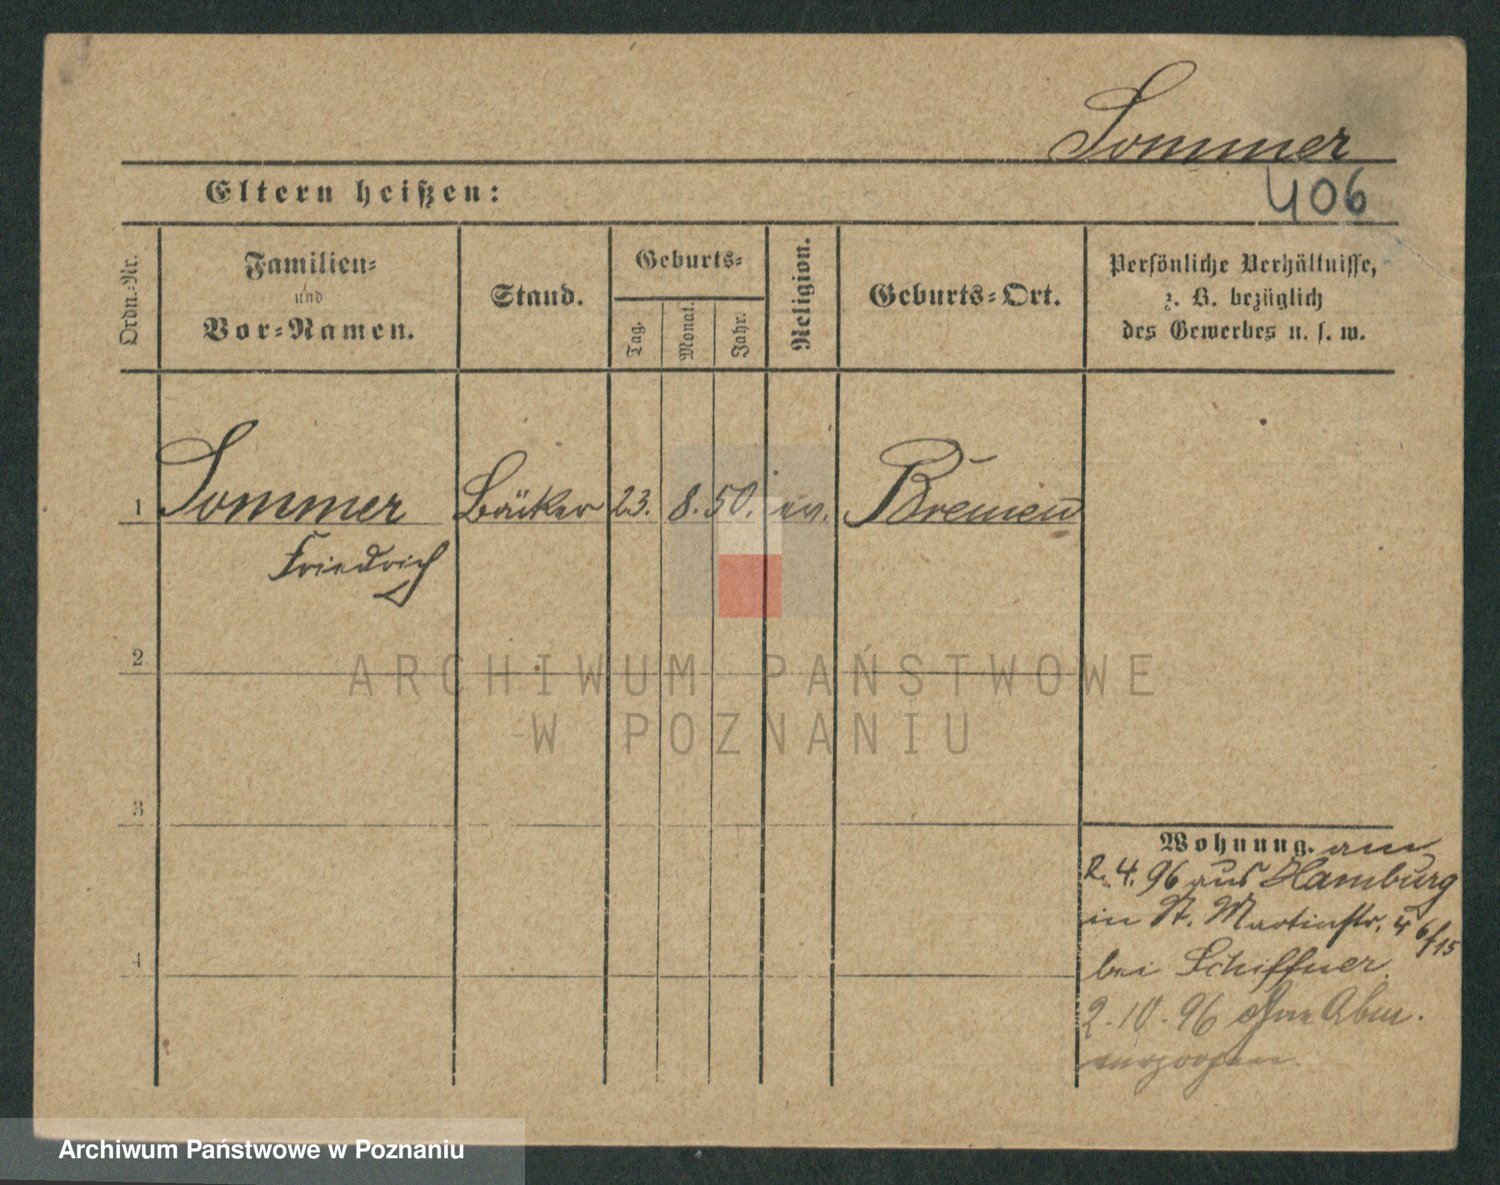 Sommer
Eltern heißen:
406
Ordn.-Nr.
Familien-
und
Vor-Namen.
Stand.
Geburts-
Tag.
Monat.
Jahr.
Religion.
Geburts-Ort.
Persönliche Verhältnisse,
z. B. bezüglich
des Gewerbes u. s. w.
1 Sommer Bäcker 23. 8. 50. ev. Bremen
Friedrich
2
ARCHIWUM PAŃSTWOWE
W POZNANIU
3
Wohnung. am
2. 4. 96 aus Hamburg
in St. Martinstr. 4 6/15
4
bei Schiffner.
2.10.96 ohne Abm.
verzogen.
Archiwum Państwowe w Poznaniu